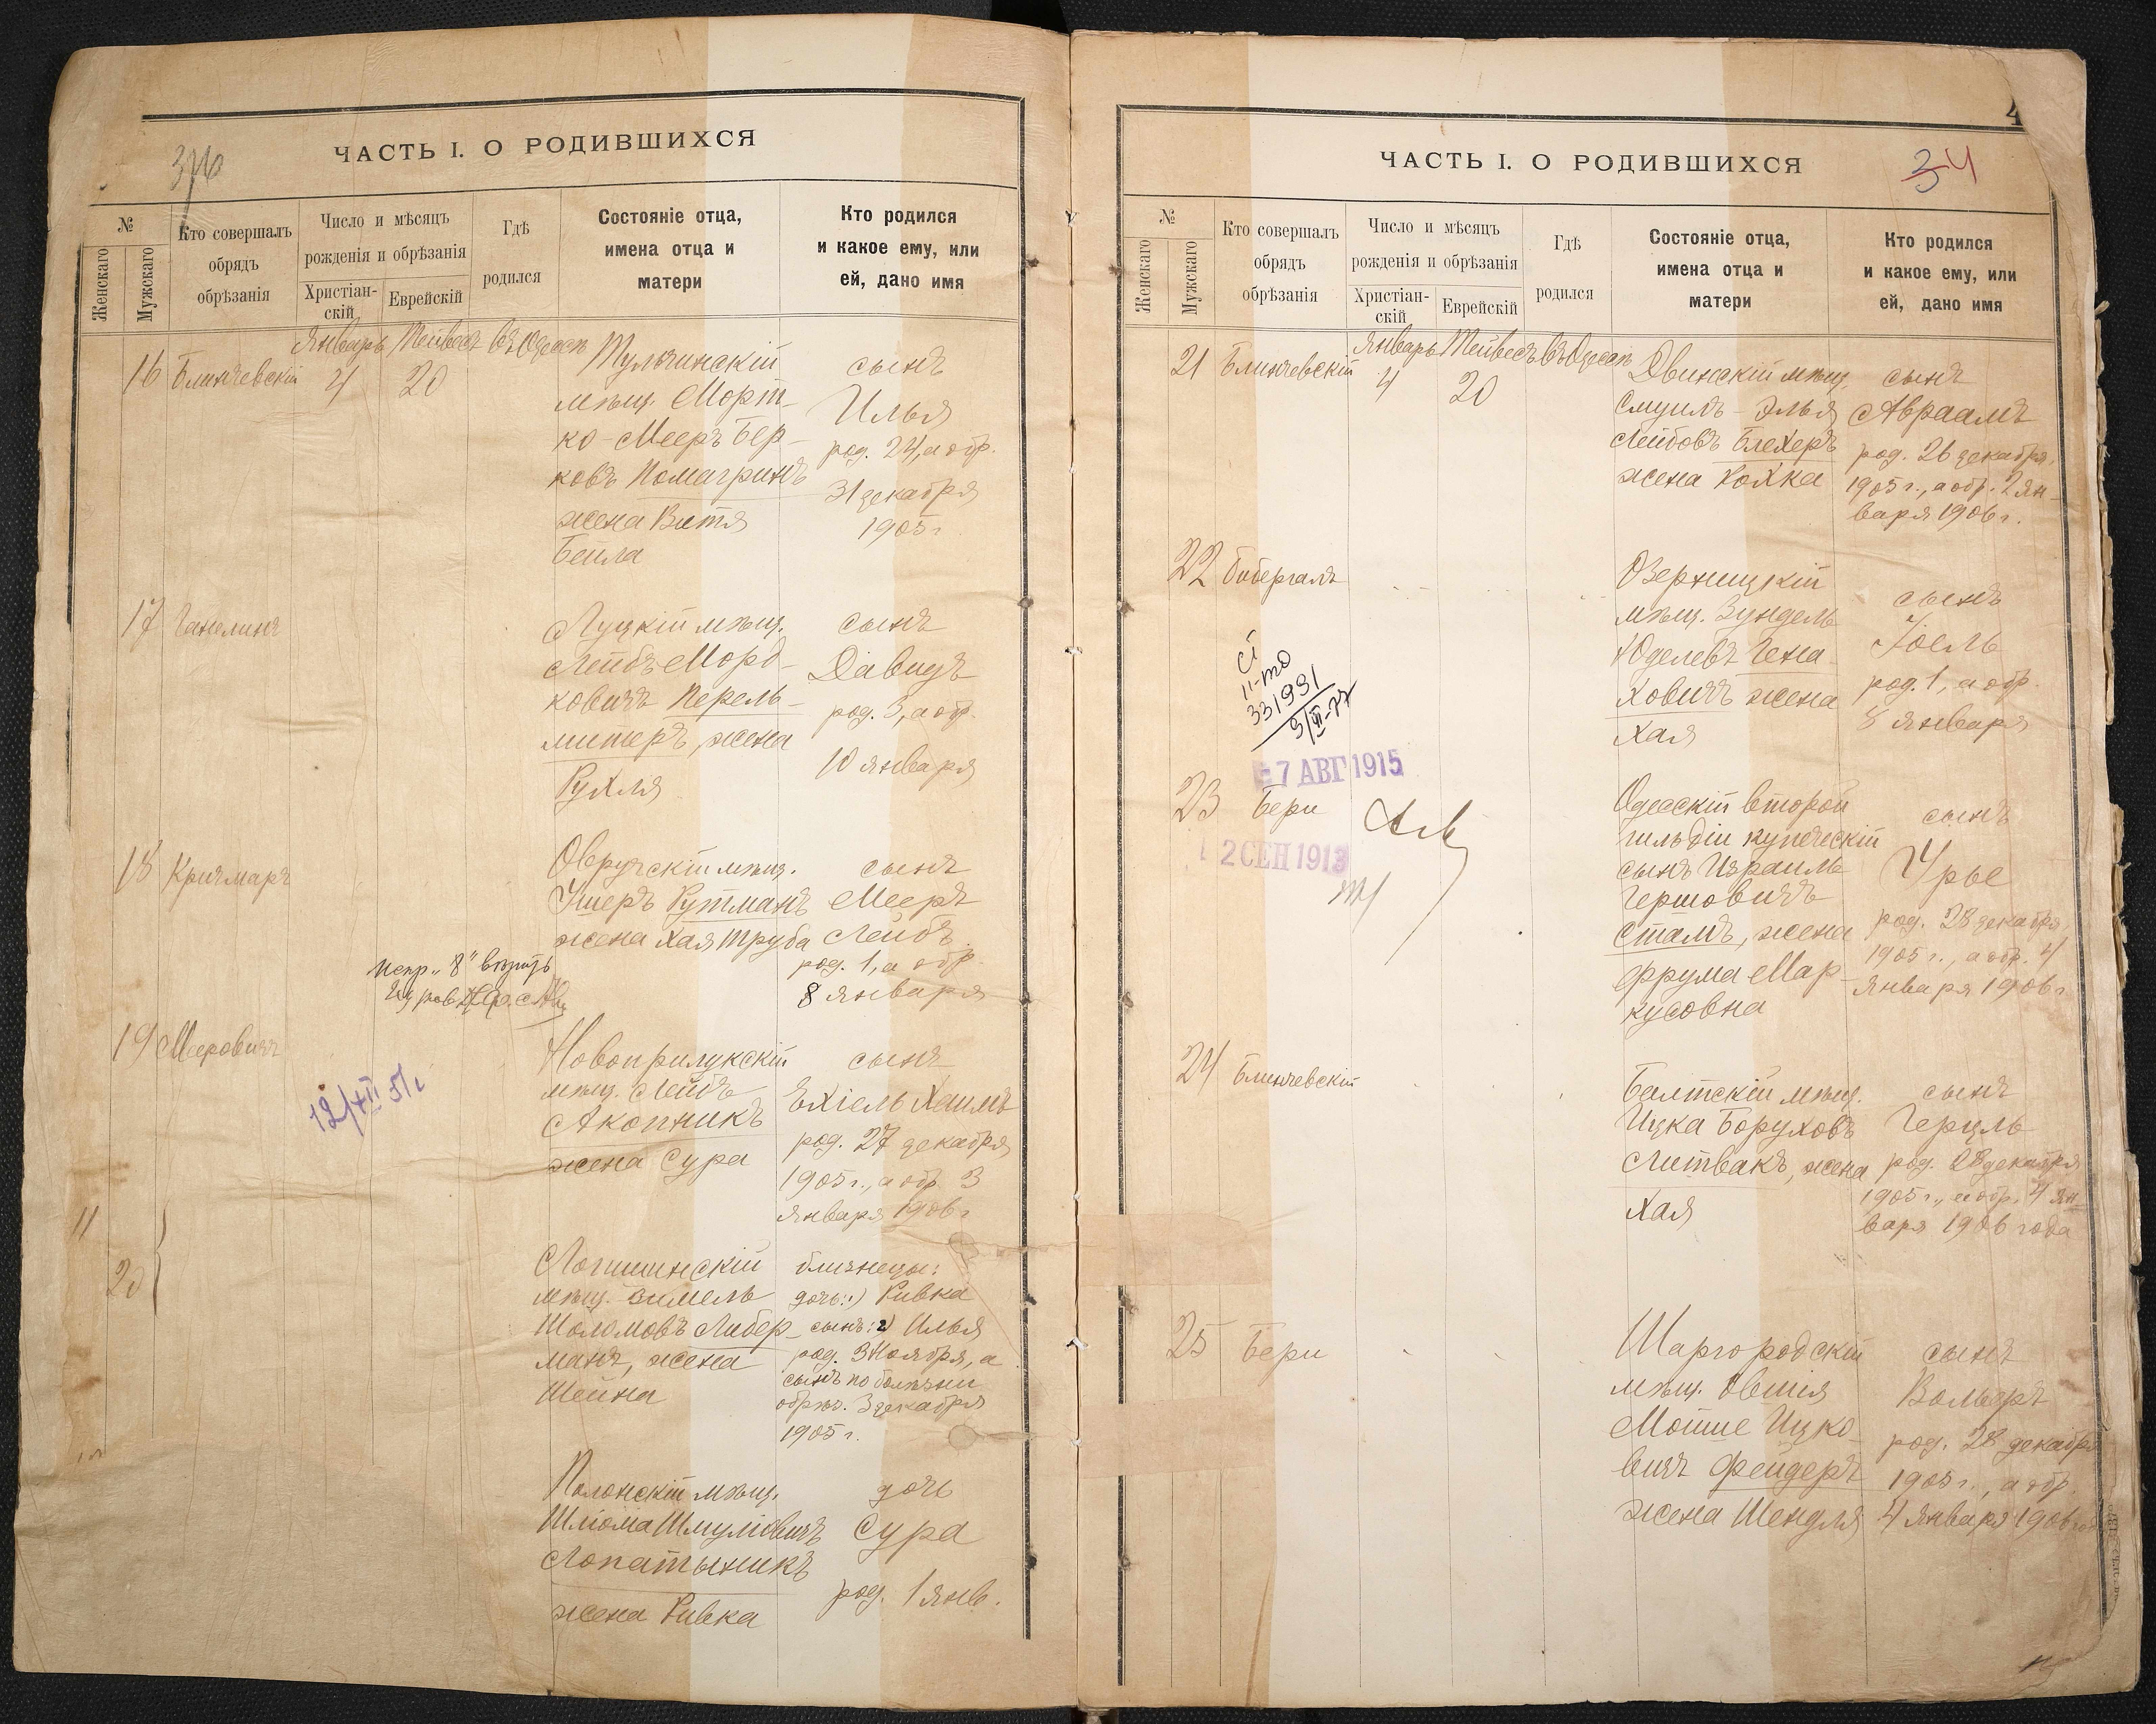 ЧАСТЬ I. О РОДИВШИХСЯ
№
Женскаго
Мужскаго
Кто совершалъ
обрядъ
обрѣзанія
Число и мѣсяцъ
рожденія и обрѣзанія
Христіан-
скій
Еврейскій
Гдѣ
родился
Состояніе отца,
имена отца и
матери
Кто родился
и какое ему, или
ей, дано имя
Январь Тейвесъ въ Одессѣ
16 Блинчевскій 4 20
Тульчинскій
мѣщ. Морт-
ко-Мееръ Бер-
ковъ Помагринъ
жена Витя
Бейла
сынъ
Илья
род. 24, а обр.
31 декабря
1905 г.
17 Ганелинъ
Луцкій мѣщ.
Лейбъ Морд-
ковичъ Перель-
митеръ, жена
Рухля
сынъ
Давидъ
род. 3, а обр.
10 января
18 Кричмаръ
Овручскій мѣщ.
Ушеръ Рутманъ
жена Хая Труба
сынъ
Мееръ
Лейбъ
род. 1, а обр.
8 января
испр. „8" вѣрить
19 Мееровичъ
12/XII 51 г.
Новоприлукскій
мѣщ. Лейбъ
Акопникъ
жена Сура
сынъ
Ехіель Хаимъ
род. 27 декабря
1905 г., а обр. 3
января 1906 г.
11
20
Логишинскій
мѣщ. Зимель
Шоломовъ Либер-
манъ, жена
Шейна
близнецы:
дочь: 1) Ривка
сынъ: 2) Илья
род. 3 Ноября, а
сынъ по болѣзни
обрѣз. 3 декабря
1905 г.
Полонскій мѣщ.
Шліома Шмулiовичъ
Лопатыникъ
жена Ривка
дочь
Сура
род. 1 янв.
4
34
ЧАСТЬ I. О РОДИВШИХСЯ
№
Женскаго
Мужскаго
Кто совершалъ
обрядъ
обрѣзанія
Число и мѣсяцъ
рожденія и обрѣзанія
Христіан-
скій
Еврейскій
Гдѣ
родился
Состояніе отца,
имена отца и
матери
Кто родился
и какое ему, или
ей, дано имя
Январь Тейвесъ въ Одессѣ
21 Блинчевскій 4 20
Двинскій мѣщ.
Смуилъ-Элья
Лейбовъ Блехеръ
жена Ройка
сынъ
Авраамъ
род. 26 декабря
1905 г., а обр. 2 ян-
варя 1906 г.
22 Бибергалъ
Озерницкій
мѣщ. Зундель
Юделевъ Гена-
ховичъ жена
Хая
сынъ
Іоель
род. 1, а обр.
8 января
II-ТО
331991
3/XI-77
7 АВГ 1915
23 Бери
2 СЕН 1913
Одесскій второй
гильдіи купеческій
сынъ Израиль
Гершовичъ
Стамъ, жена
Фрума Мар-
кусовна
сынъ
Урье
род. 28 декабря
1905 г., а обр. 4
Января 1906 г.
24 Блинчевскій
Балтскій мѣщ.
Ицка Боруховъ
Литвакъ, жена
Хая
сынъ
Герцль
род. 28 декабря
1905 г., а обр. 4 ян
варя 1906 года
25 Бери
Шаргородскій
мѣщ. Овшія
Мошше Ицко-
вичъ Фейдеръ
жена Шендля
сынъ
Вольфъ
род. 28 декабря
1905 г., а обр.
4 января 1906 г.